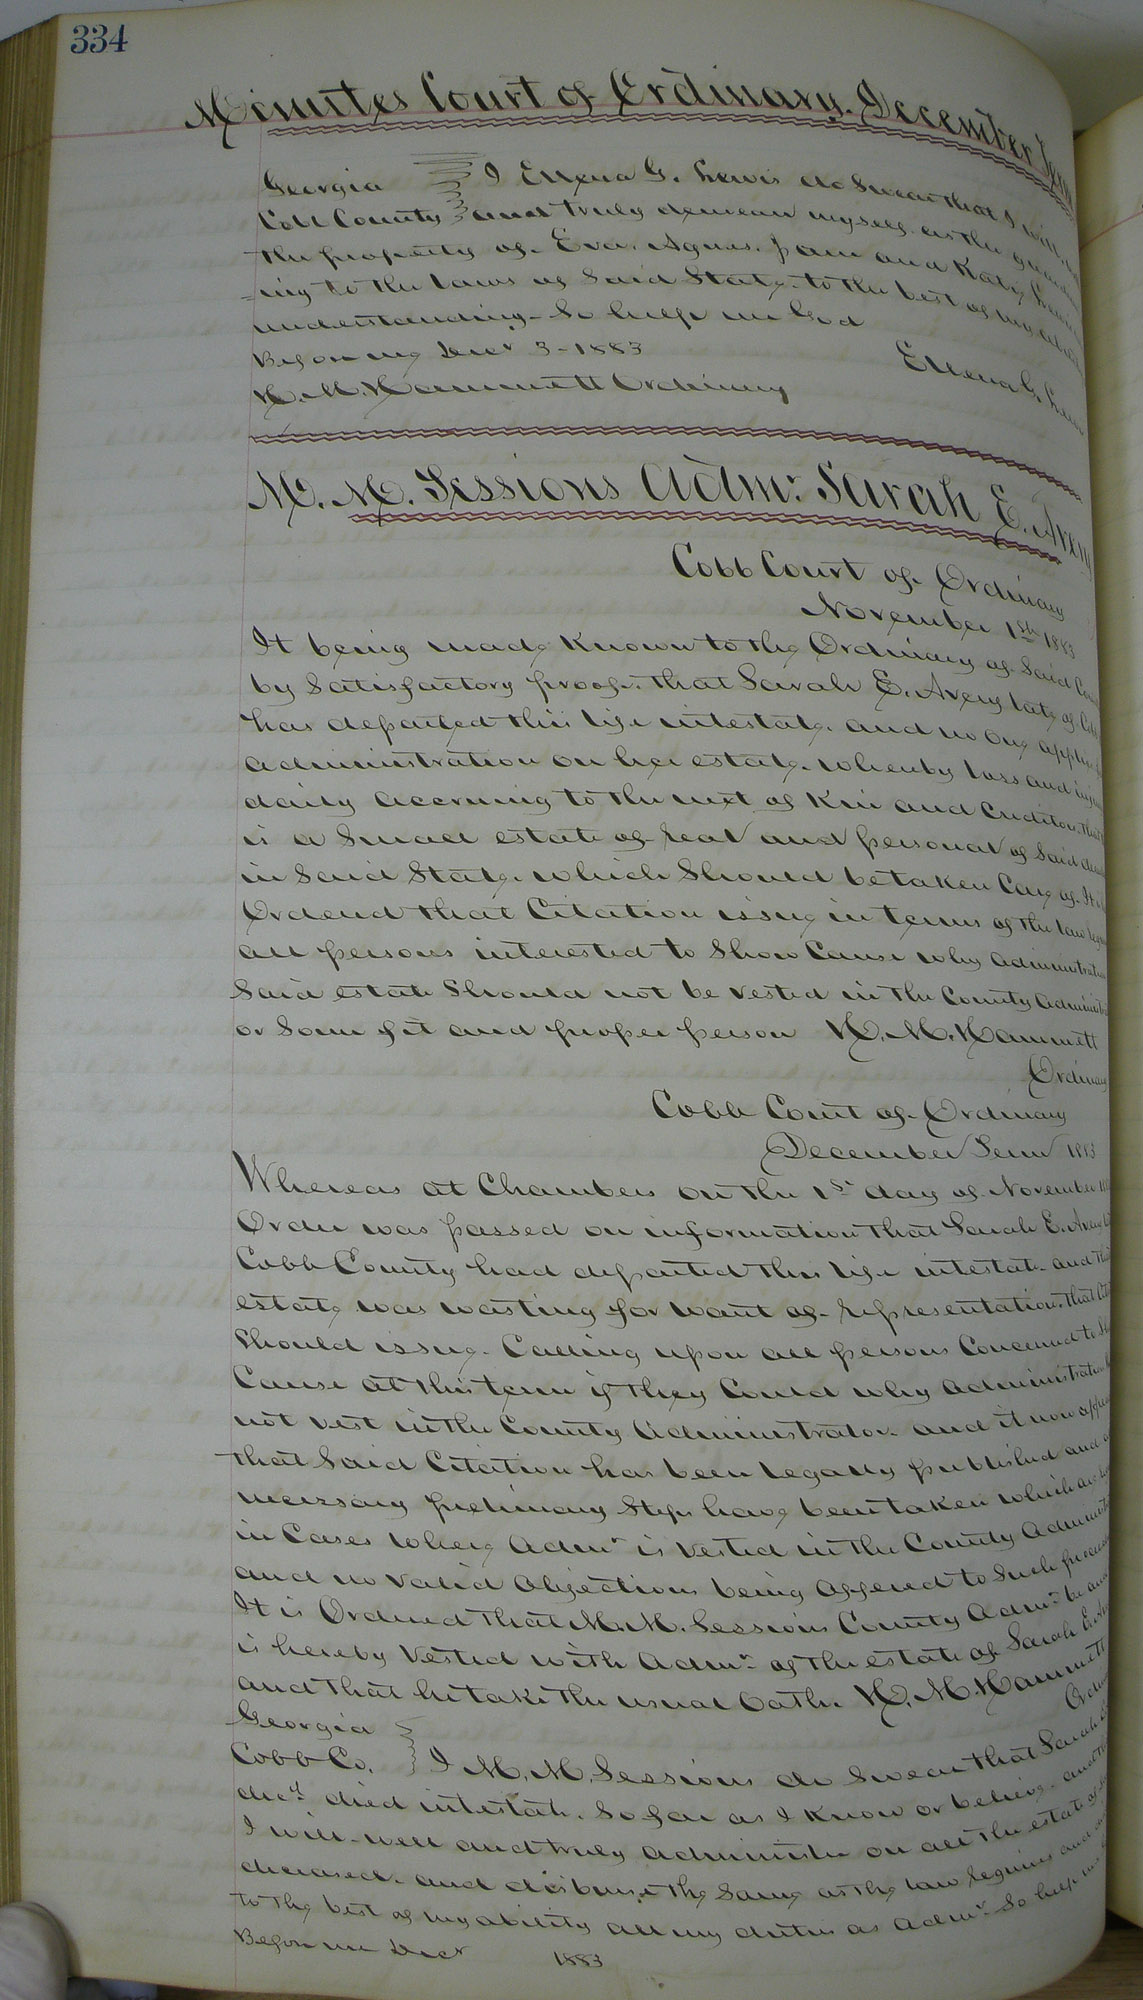 334
Minutes Court of Ordinary. December Term
Georgia I Ellena G. Lewis do Swear that I will
Cobb County and truly demean myself as the guardian
the property of Eva. Agnes. and Katy Lewis
-ing to the laws of Said State. to the best of my
understanding - So help me God
Before me Decr 3 - 1883 Ellena G. Lewis
H. M. Hammett Ordinary
M. M. Sessions Admr. Sarah E. Avery
Cobb Court of Ordinary
November 1st 1883
It being made known to the Ordinary of Said
by Satisfactory proof. that Sarah E. Avery late of
has departed this life intestate. and no one
administration on her estate. whereby loss and
daily accruing to the next of Kin and Creditors.
is a Small estate of real and personal of Said
in Said State. which Should be taken care of. It is
Ordered that Citation issue in terms of the law
all persons interested to Show Cause why administration
Said estate Should not be vested in the County
or Some fit and proper person H. M. Hammett
Ordinary
Cobb Court of Ordinary
December Term 1883
Whereas at Chambers on the 1st day of November
Order was passed on information that Sarah E. Avery
Cobb County had departed this life intestate and
estate was wasting for want of representation. that
Should issue. Calling upon all persons Concerned to
Cause at this term if they Could why administration
not vest in the County administrator. and it now
that Said Citation has been legally published and
necessary preliminary Steps have been taken which
in Cases where Admr is vested in the County
and no valid objections being offered to Such
It is Ordered that M. M. Sessions County Admr be and
is hereby vested with Admr. of the estate of Sarah E.
and that he take the usual oath. H. M. Hammett
Georgia
Cobb Co. I M. M. Sessions do Swear that Sarah
decd died intestate. So far as I Know or believe. and
I will well and truly administer on all the estate of
deceased. and disburse the Same as the law requires and
to the best of my ability all my duties as Admr. So help
Before me Decr 1883